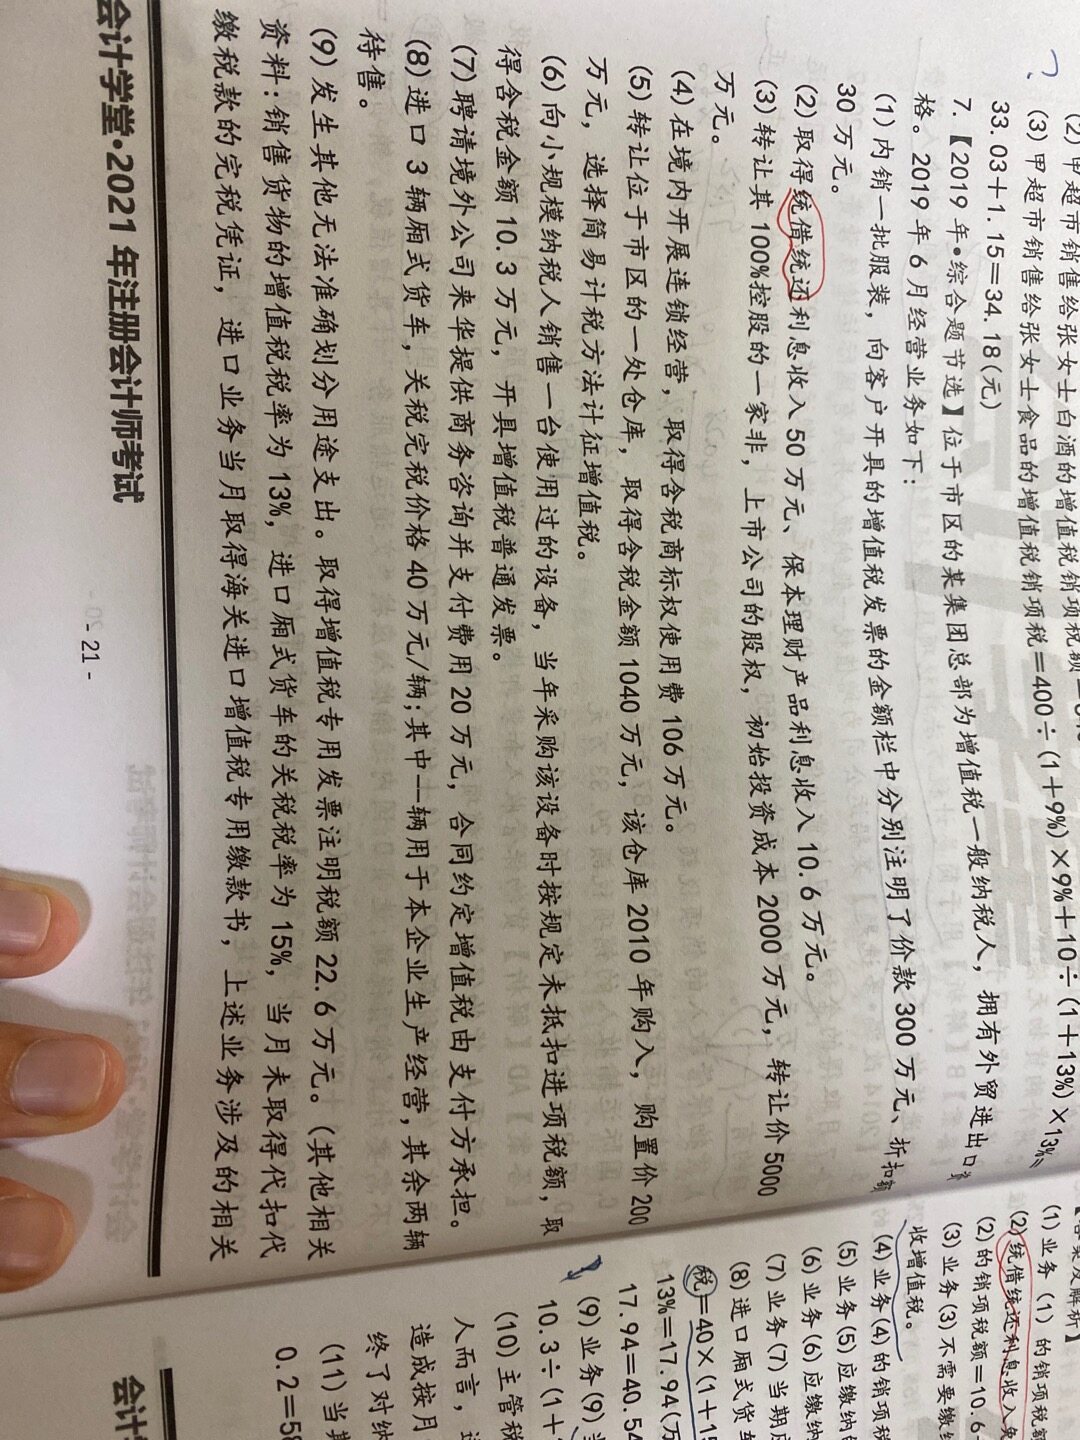 (2)甲超市销售给张女士白酒的增值税销项税额=
(3)甲超市销售给张女士食品的增值税销项税=400÷(1+9%)×9%+10÷(1+13%)×13%=
33.03+1.15=34.18(元)
7.【2019年•综合题节选】位于市区的某集团总部为增值税一般纳税人，拥有外贸进出口资
格。2019年6月经营业务如下：
(1)内销一批服装，向客户开具的增值税发票的金额栏中分别注明了价款300万元、折扣额
30万元。
(2)取得统借统还利息收入50万元、保本理财产品利息收入10.6万元。
(3)转让其100%控股的一家非，上市公司的股权，初始投资成本2000万元，转让价5000
万元。
(4)在境内开展连锁经营，取得含税商标权使用费106万元。
(5)转让位于市区的一处仓库，取得含税金额1040万元，该仓库2010年购入，购置价200
万元，选择简易计税方法计征增值税。
(6)向小规模纳税人销售一台使用过的设备，当年采购该设备时按规定未抵扣进项税额，取
得含税金额10.3万元，开具增值税普通发票。
(7)聘请境外公司来华提供商务咨询并支付费用20万元，合同约定增值税由支付方承担。
(8)进口3辆厢式货车，关税完税价格40万元/辆;其中一辆用于本企业生产经营，其余两辆
待售。
(9)发生其他无法准确划分用途支出。取得增值税专用发票注明税额22.6万元。(其他相关
资料：销售货物的增值税税率为13%，进口厢式货车的关税税率为15%，当月未取得代扣代
缴税款的完税凭证，进口业务当月取得海关进口增值税专用缴款书，上述业务涉及的相关
会计学堂•2021年注册会计师考试
- 21 -
【答案及解析】
(1)业务(1)的销项税额
(2)统借统还利息收入免
(2)的销项税额=10.6
(3)业务(3)不需要缴
收增值税。
(4)业务(4)的销项税
(5)业务(5)应缴纳
(6)业务(6)应缴纳
(7)业务(7)当期应
(8)进口厢式货车
税=40×(1+15
13%=17.94(万
17.94=40.54
(9)业务(9)
10.3÷(1+
(10)主管税
人而言，
造成按月
终了对纳
(11)当期
0.2=58
会计